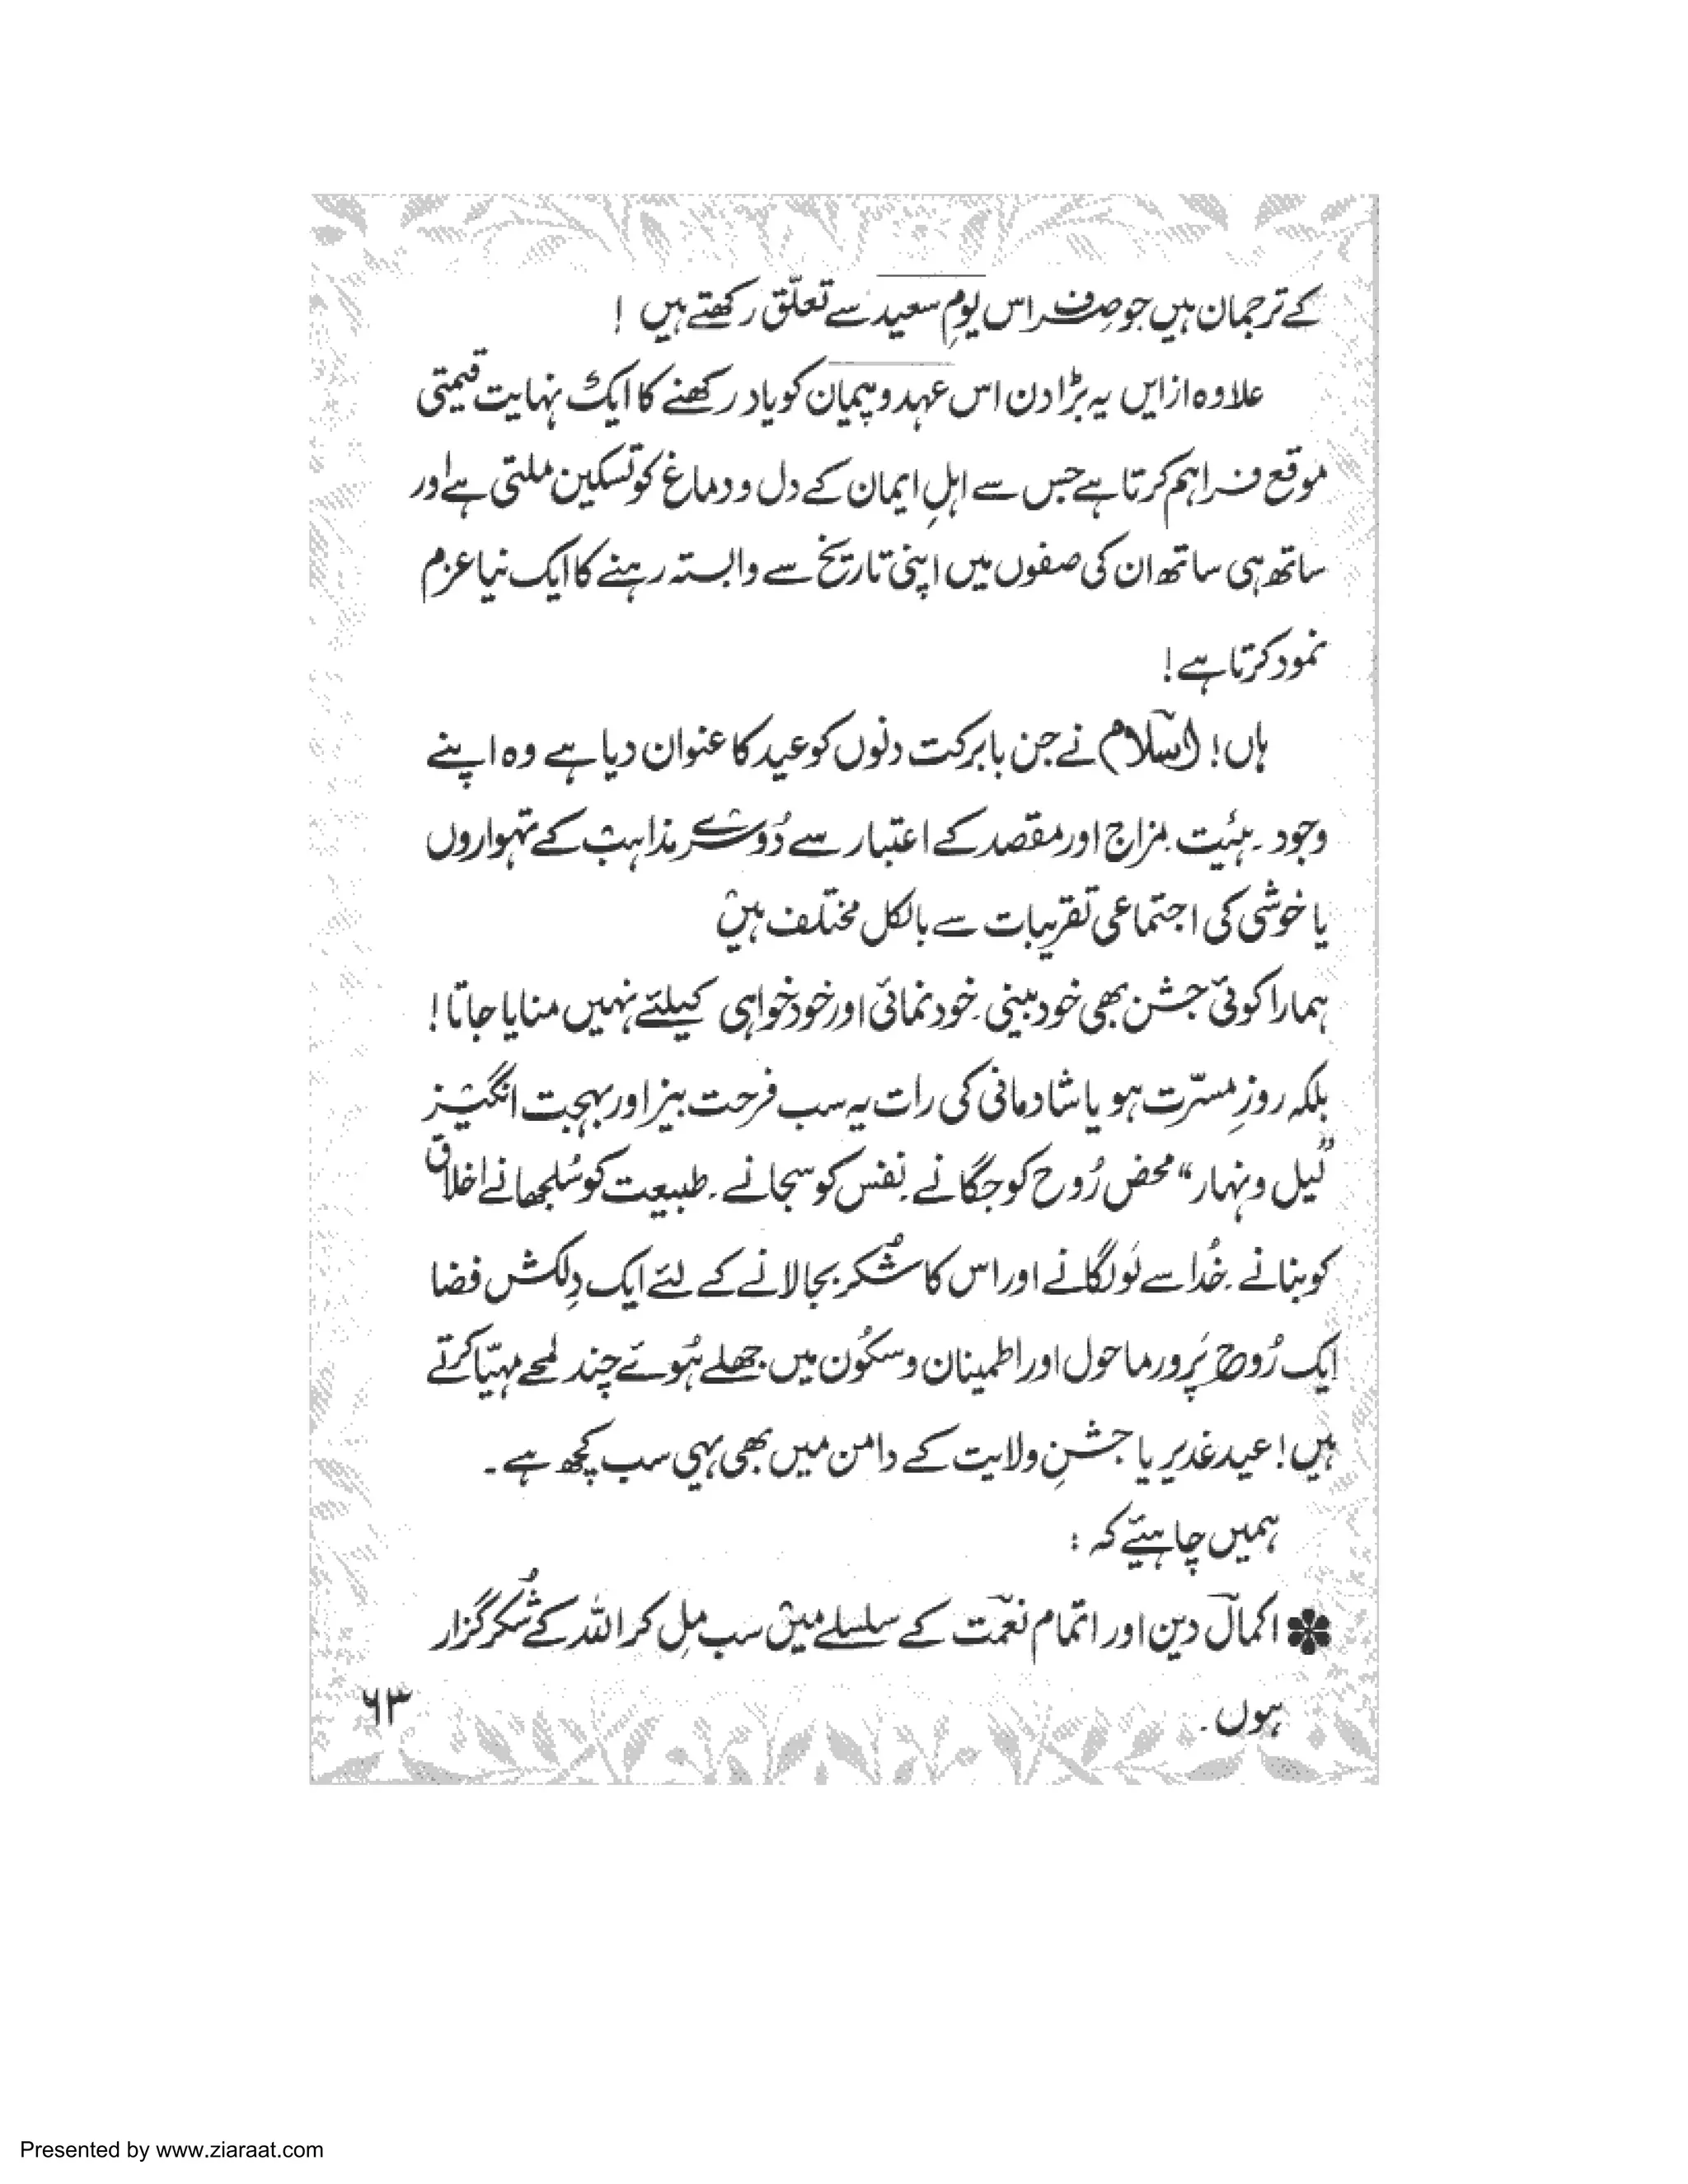 کے ترجمان ہیں جو صِرف اس یومِ سعید سے تعلّق رکھتے ہیں !
علاوہ ازایں یہ بڑا دن اس عہد و پیمان کو یاد رکھنے کا ایک نہایت قیمتی
موقع فراہم کرتا ہے جس سے اہلِ ایمان کے دل و دماغ کو تسکین ملتی ہے اور
ساتھ ہی ساتھ ان کی صفوں میں اپنی تاریخ سے وابستہ رہنے کا ایک نیا عزم
نمود کرتا ہے !
ہاں ! اسلام نے جن بابرکت دنوں کو عید کا عنوان دیا ہے وہ اپنے
وجود ۔ ہئیت ۔ مزاج اور مقصد کے اعتبار سے دُوسرے مذاہب کے تہواروں
یا خوشی کی اجتماعی تقریبات سے بالکل مختلف ہیں
ہمارا کوئی جشن بھی خود بینی ۔ خود نمائی اور خود خواہی کیلئے نہیں منایا جاتا !
بلکہ روزِ مسرّت ہو یا شادمانی کی رات یہ سب فرحت بیز اور بہجت انگیز
”لیل و نہار“ محض رُوح کو جگانے ۔ نفس کو سجانے ۔ طبیعت کو سُلجھانے اخلاق
کو بنانے ۔ خُدا سے لَو لگانے اور اس کا شُکر بجا لانے کے لئے ایک دِلکش فضا
ایک رُوح پَرور ماحول اور اطمینان و سکُون میں جھلے ہُوئے چند لمحے مہیّا کرتے
ہیں ! عید غدیر یا جشنِ ولایت کے دامن میں بھی یہی سب کچھ ہے ۔
ہمیں چاہئیے کہ :
✽ اکمال دین اور اتمام نعمت کے سلسلے میں سب مِل کر اللہ کے شُکر گزار
ہوں ۔
۶۳
Presented by www.ziaraat.com